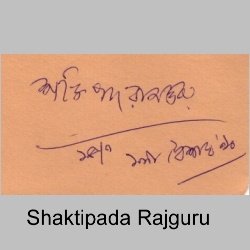 শক্তিপদ রাজগুরু
১লা বৈশাখ
Shaktipada Rajguru